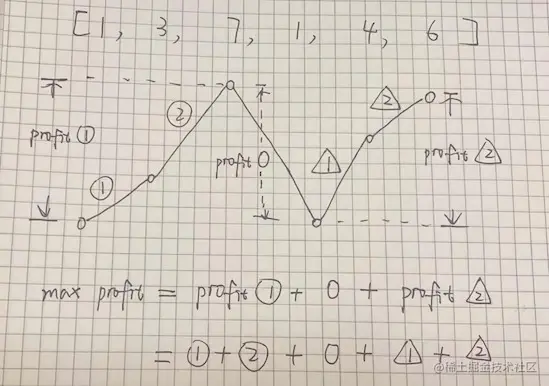 [1, 3, 7, 1, 4, 6]
②
△2
profit ①
profit 0
△1
profit △2
①
max profit = profit ① + 0 + profit △2
= ① + ② + 0 + △1 + △2
@稀土掘金技术社区